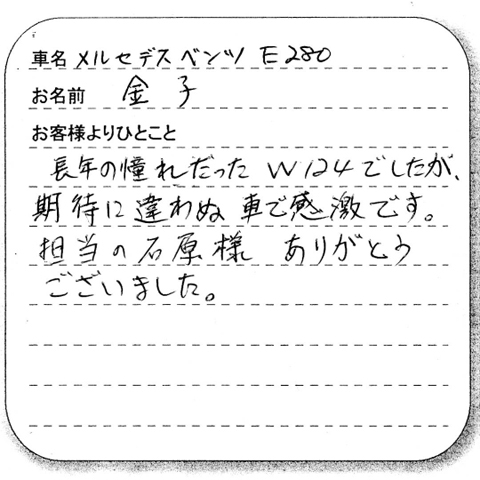 車名 メルセデスベンツ E280
お名前 金子
お客様よりひとこと
長年の憧れだった W124でしたが、
期待に違わぬ車で感激です。
担当の石原様 ありがとう
ございました。